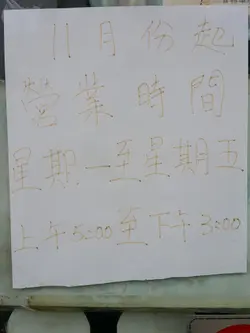 11月份起
營業時間
星期一至星期五
上午5:00至下午3:00